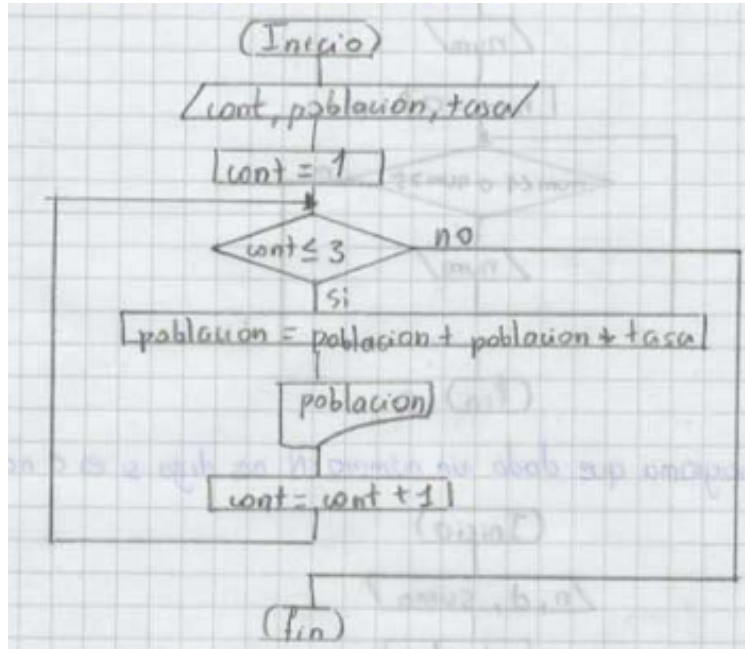 Inicio
cont, población, tasa
cont = 1
cont ≤ 3
no
si
población = poblacion + poblacion * tasa
poblacion
cont = cont + 1
fin